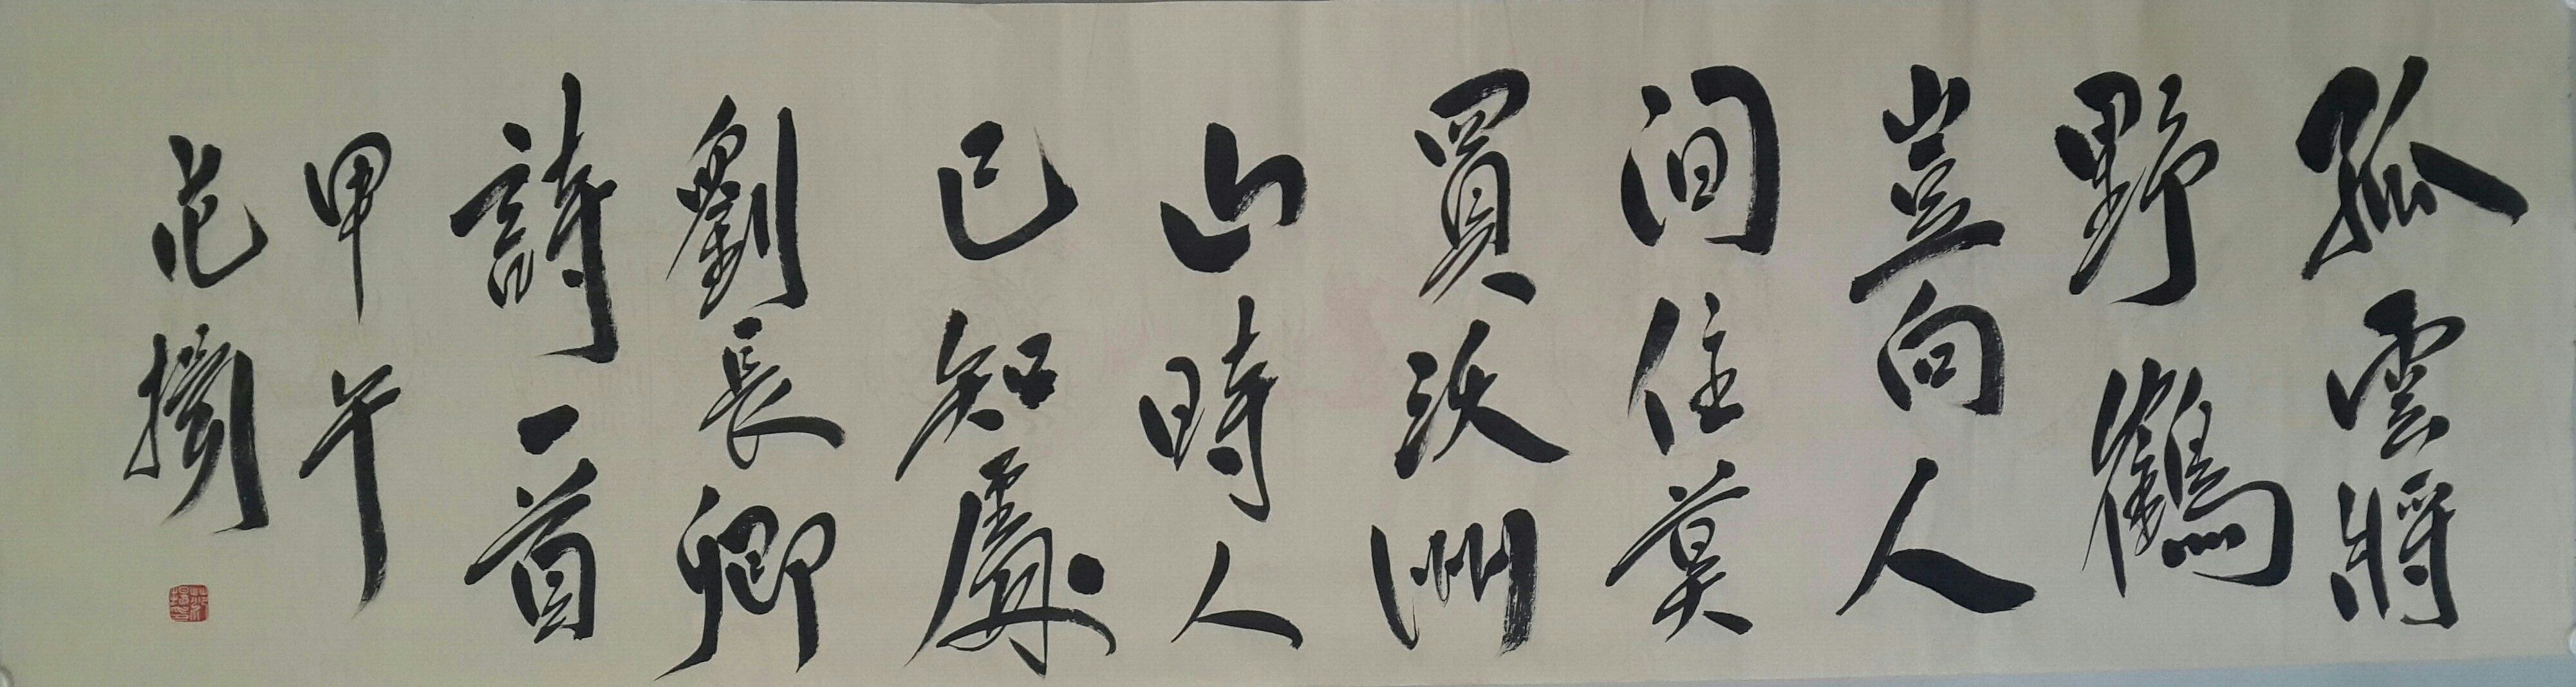 孤雲將
野鶴
豈向人
间住莫
買沃洲
山時人
已知處
劉長卿
詩一首
甲午